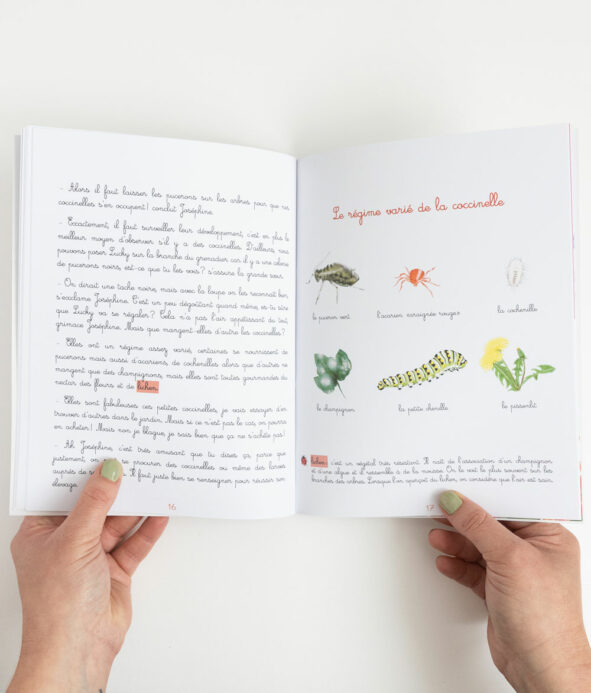 - Alors il faut laisser les pucerons sur les arbres pour que nos
coccinelles s'en occupent! conclut Joséphine.
- Exactement, il faut surveiller leur développement, c'est en plus le
meilleur moyen d'observer s'il y a des coccinelles. D'ailleurs, nous
pouvons poser Lucky sur la branche du grenadier car il y a une colonie
de pucerons noirs, est-ce que tu les vois? s'assura la grande sœur.
- On dirait une tache noire, mais avec la loupe on les reconnaît bien,
s'exclame Joséphine. C'est un peu dégoûtant quand même, es tu sûre
que Lucky va se régaler? Cela n'a pas l'air appétissant du tout,
grimace Joséphine. Mais que mangent-elles d'autre les coccinelles?
- Elles ont un régime assez varié, certaines se nourrissent de
pucerons mais aussi d'acariens, de cochenilles alors que d'autres ne
mangent que des champignons, mais elles sont toutes gourmandes du
nectar des fleurs et de lichen.
- Elles sont fabuleuses ces petites coccinelles, je vais essayer d'en
trouver d'autres dans le jardin. Mais si ce n'est pas le cas, on pourra
en acheter! Mais non je blague, je sais bien que ça ne s'achète pas!
- Ah Joséphine, c'est très amusant que tu dises ça, parce que
justement, on se procurer des coccinelles ou même des larves
auprès de Il faut juste bien se renseigner pour réussir son
élevage.
16
Le régime varié de la coccinelle
le puceron vert
l'acarien araignée rouge
la cochenille
le champignon
la petite chenille
le pissenlit
lichen: c'est un végétal très résistant. Il naît de l'association d'un champignon
et d'une algue et il ressemble à de la mousse. On le voit le plus souvent sur les
branches des arbres. Lorsque l'on aperçoit du lichen, on considère que l'air est sain.
17